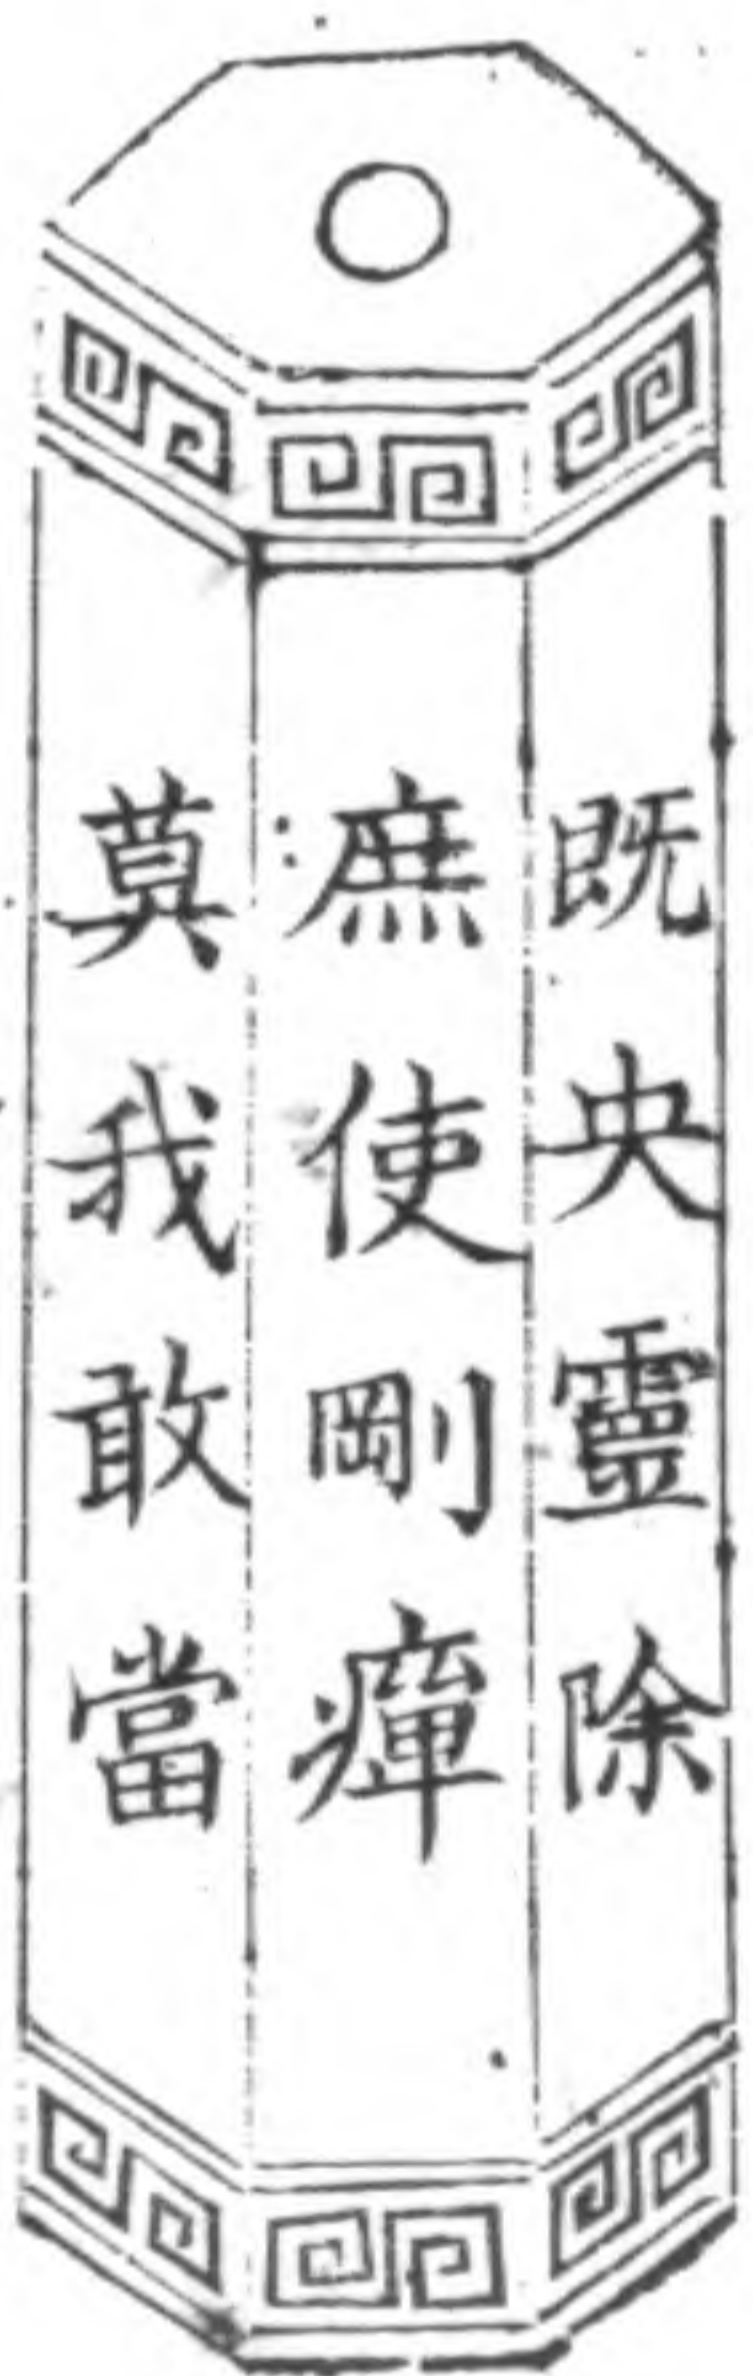 既央靈除
庶使剛瘴
莫我敢當